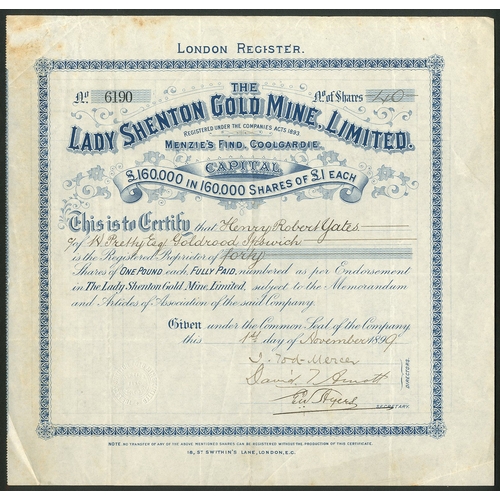 LONDON REGISTER.
No. 6190 No. of Shares 40
THE
LADY SHENTON GOLD MINE, LIMITED.
REGISTERED UNDER THE COMPANIES ACTS 1893.
MENZIE'S FIND, COOLGARDIE.
CAPITAL
£160,000 IN 160,000 SHARES OF £1 EACH
This is to Certify that Henry Robert Yates
of B Pretty Esq Goldrood Ipswich
is the Registered Proprietor of forty
Shares of ONE POUND each, FULLY PAID, numbered as per Endorsement
in The Lady Shenton Gold Mine, Limited, subject to the Memorandum
and Articles of Association of the said Company.
Given under the Common Seal of the Company
this 1st day of November 1899
DIRECTORS.
SECRETARY.
NOTE NO TRANSFER OF ANY OF THE ABOVE MENTIONED SHARES CAN BE REGISTERED WITHOUT THE PRODUCTION OF THIS CERTIFICATE.
18, ST SWITHIN'S LANE, LONDON, E.C.